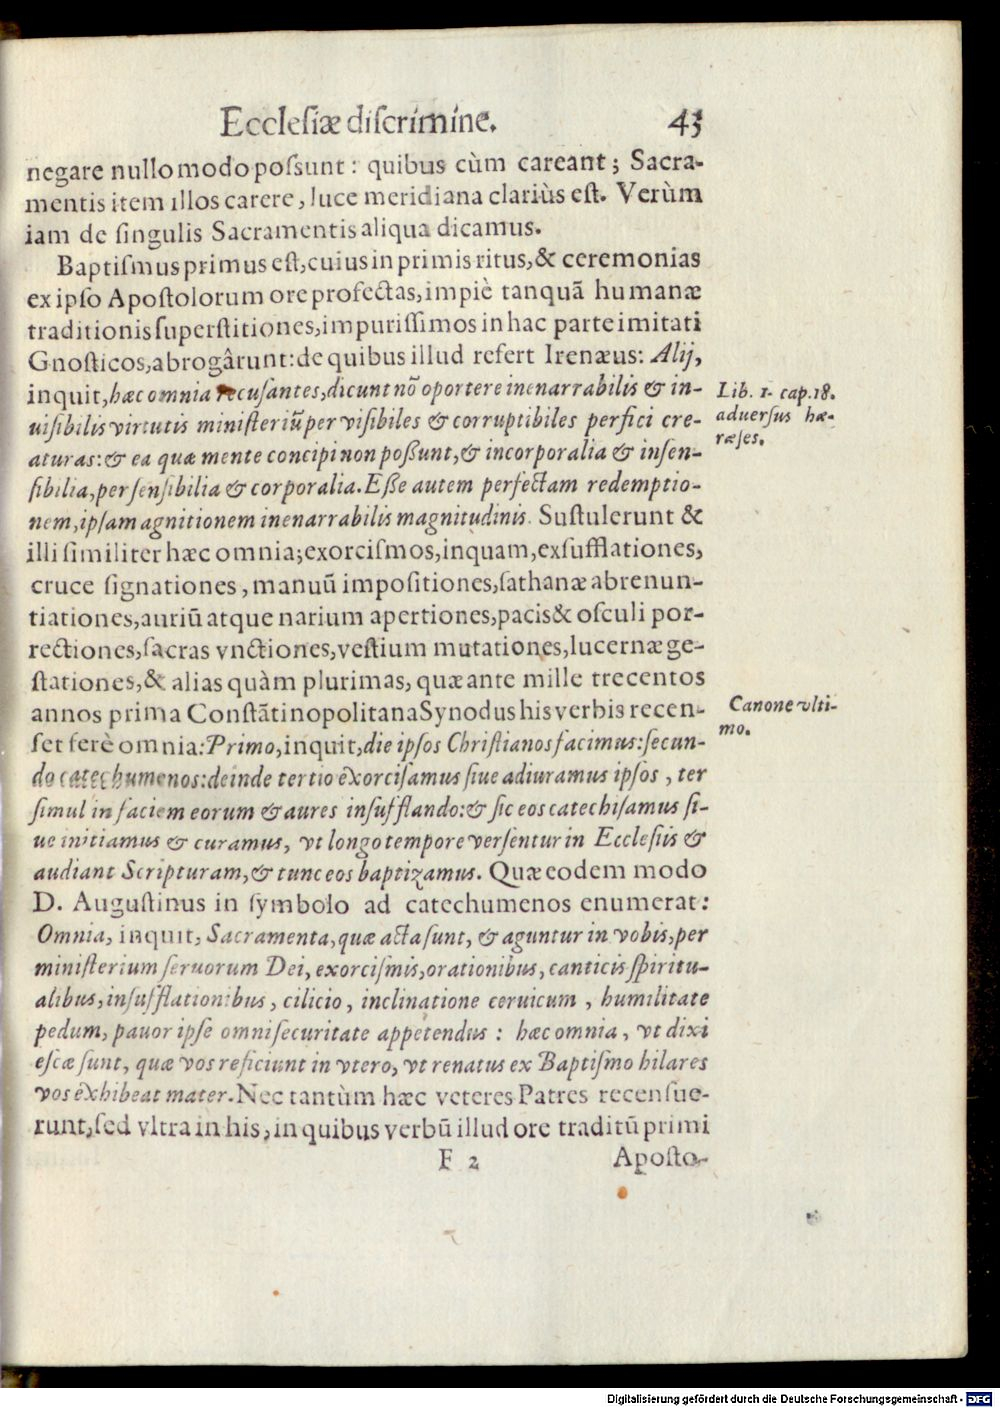 Eccleſiæ diſcrimine. 43
negare nullo modo poſsunt: quibus cùm careant; Sacra-
mentis item illos carere, luce meridiana clariùs eſt. Verùm
iam de ſingulis Sacramentis aliqua dicamus.
Baptiſmus primus eſt, cuius in primis ritus, & ceremonias
ex ipſo Apoſtolorum ore profectas, impiè tanquã humanæ
traditionis ſuperſtitiones, impuriſſimos in hac parte imitati
Gnoſticos, abrogârunt: de quibus illud refert Irenæus: Alij,
inquit, hæc omnia recuſantes, dicunt nõ oportere inenarrabilis & in-
uiſibilis virtutis miniſteriũ per viſibiles & corruptibiles perfici cre-
aturas: & ea quæ mente concipi non poßunt, & incorporalia & inſen-
ſibilia, per ſenſibilia & corporalia. Eße autem perfectam redemptio-
nem, ipſam agnitionem inenarrabilis magnitudinis. Suſtulerunt &
illi ſimiliter hæc omnia; exorciſmos, inquam, exſufflationes,
cruce ſignationes, manuũ impoſitiones, ſathanæ abrenun-
tiationes, auriũ atque narium apertiones, pacis & oſculi por-
rectiones, ſacras vnctiones, veſtium mutationes, lucernæ ge-
ſtationes, & alias quàm plurimas, quæ ante mille trecentos
annos prima Conſtãtinopolitana Synodus his verbis recen-
ſet ferè omnia: Primo, inquit, die ipſos Chriſtianos facimus: ſecun-
do catechumenos: deinde tertio exorciſamus ſiue adiuramus ipſos, ter
ſimul in faciem eorum & aures inſufflando: & ſic eos catechiſamus ſi-
ue initiamus & curamus, vt longo tempore verſentur in Eccleſiis &
audiant Scripturam, & tunc eos baptizamus. Quæ eodem modo
D. Auguſtinus in ſymbolo ad catechumenos enumerat:
Omnia, inquit, Sacramenta, quæ acta ſunt, & aguntur in vobis, per
miniſterium ſeruorum Dei, exorciſmis, orationibus, canticis ſpiritu-
alibus, inſufflationibus, cilicio, inclinatione ceruicum, humilitate
pedum, pauor ipſe omni ſecuritate appetendus: hæc omnia, vt dixi
eſcæ ſunt, quæ vos reficiunt in vtero, vt renatus ex Baptiſmo hilares
vos exhibeat mater. Nec tantùm hæc veteres Patres recenſue-
runt, ſed vltra in his, in quibus verbũ illud ore traditũ primi
F 2 Apoſto-
Lib. 1. cap. 18.
aduerſus hæ-
ræſes.
Canone vlti-
mo.
Digitalisierung gefördert durch die Deutsche Forschungsgemeinschaft - DFG